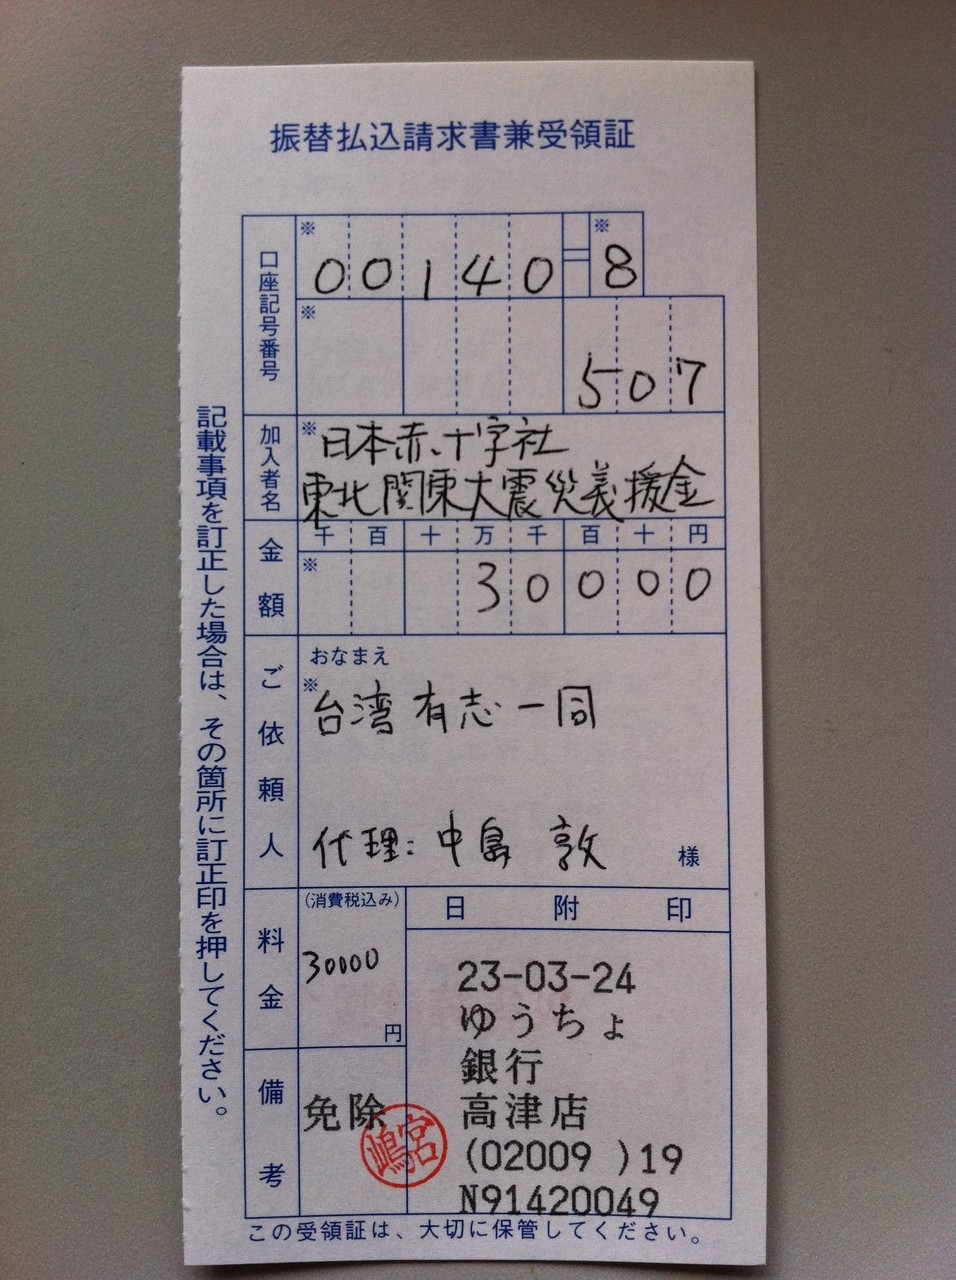 振替払込請求書兼受領証
口座記号番号
※
00140
※
8
※
507
加入者名
※日本赤十字社
東北関東大震災義援金
金額
千百十万千百十円
※
30000
ご依頼人
おなまえ
※台湾有志一同
代理:中島 敦 様
料金
(消費税込み)
30000
円
日附印
23-03-24
ゆうちょ
銀行
高津店
(02009 )19
N91420049
備考
免除
宮嶋
記載事項を訂正した場合は、その箇所に訂正印を押してください。
この受領証は、大切に保管してください。